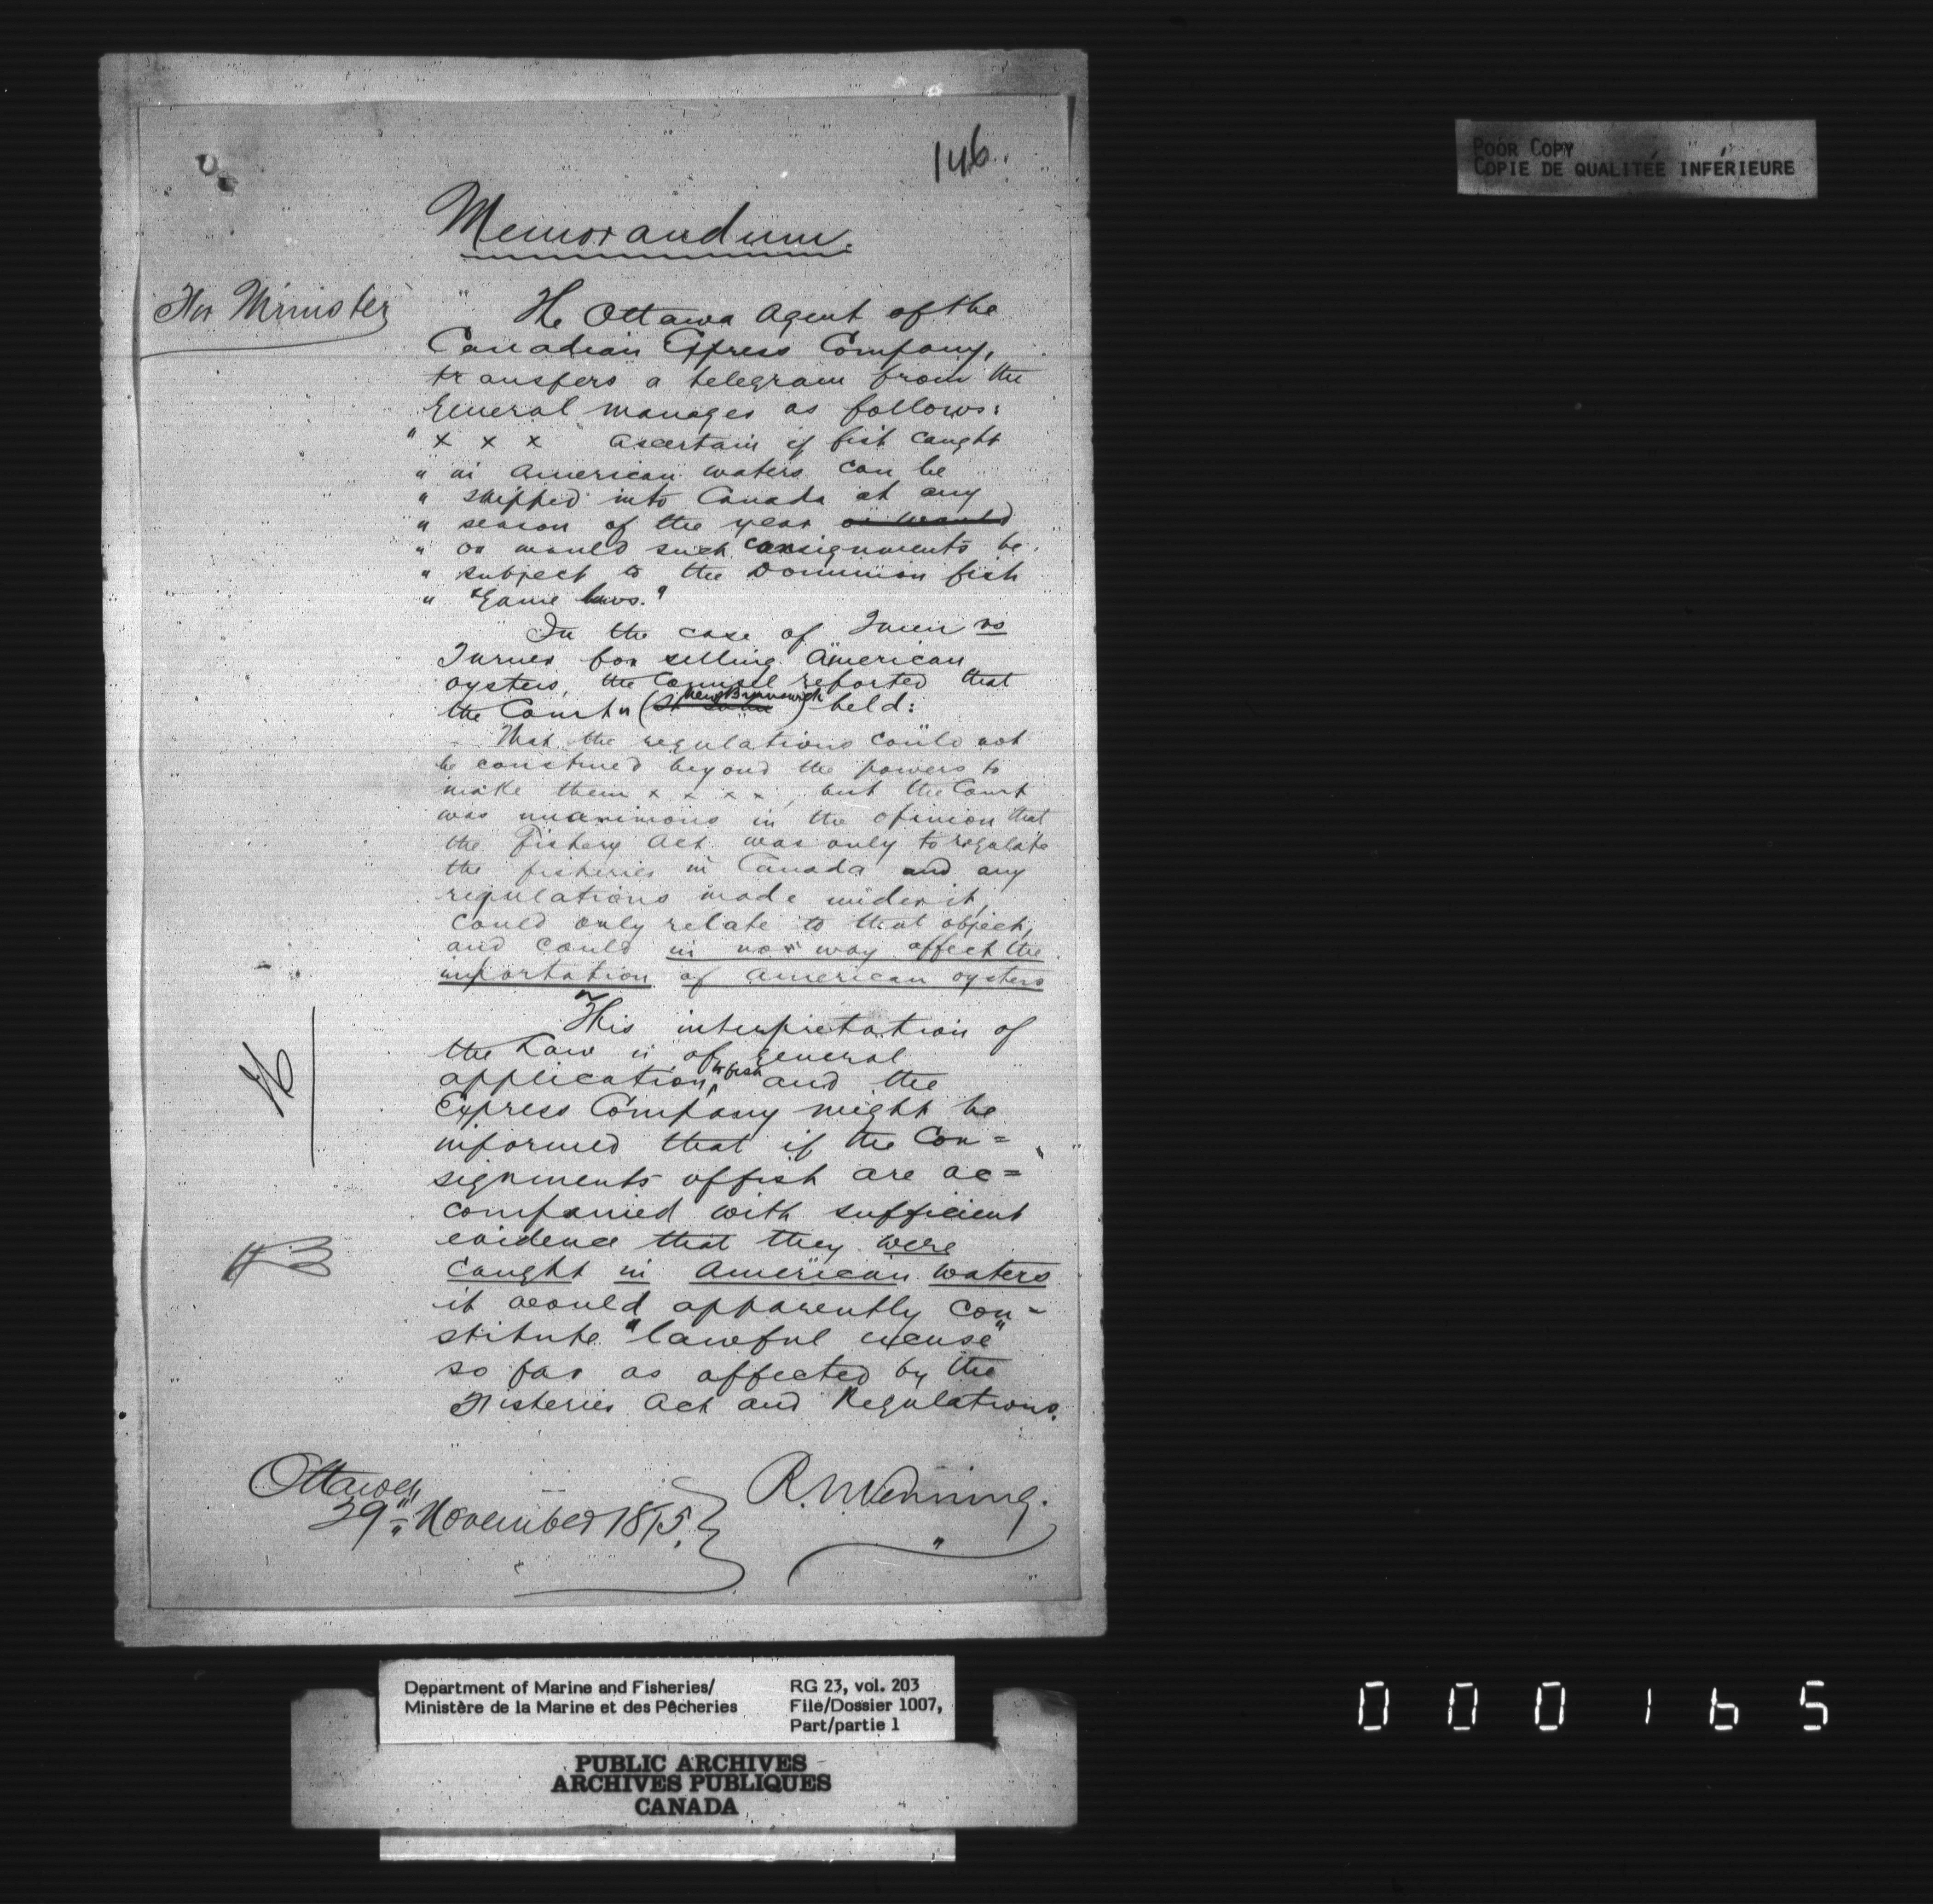 146.
Memorandum.
For Minister
The Ottawa Agent of the
Canadian Express Company,
transfers a telegram from the
General manager as follows:
" x x x ascertain if fish caught
" in American waters can be
" shipped into Canada at any
" season of the year or would
" or would such consignments be
" subject to the Dominion fish
" & Game laws."
In the case of Queen vs
Turner for selling American
oysters, the Counsel reported that
the Court (New Brunswick) held:
That the regulations could not
be construed beyond the powers to
make them x x x x, but the Court
was unanimous in the opinion that
the Fishery Act was only to regulate
the fisheries in Canada and any
regulations made under it,
could only relate to that object,
and could in no way affect the
importation of American oysters
This interpretation of
the Law is of general
application, to fish and the
Express Company might be
informed that if the Con=
signments of fish are ac=
companied with sufficient
evidence that they were
caught in American waters
it would apparently con-
stitute "lawful excuse"
so far as affected by the
Fisheries Act and Regulations.
Ottawa
29th November 1895.
R. N. Venning.
POOR COPY
COPIE DE QUALITÉE INFÉRIEURE
Department of Marine and Fisheries/
Ministère de la Marine et des Pêcheries
RG 23, vol. 203
File/Dossier 1007,
Part/partie 1
PUBLIC ARCHIVES
ARCHIVES PUBLIQUES
CANADA
000165